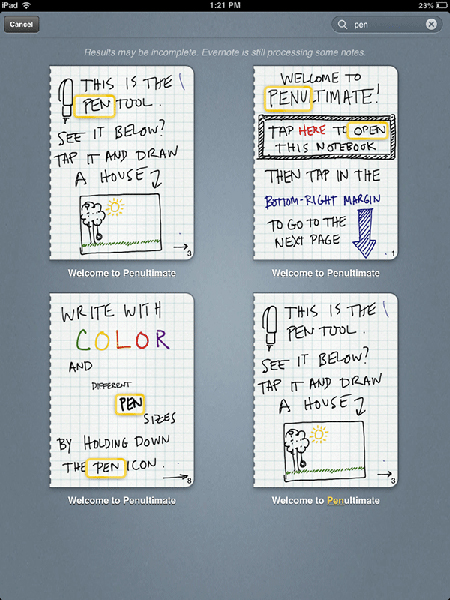 iPad 1:21 PM 23%
Cancel pen
Results may be incomplete. Evernote is still processing some notes.
THIS IS THE
PEN TOOL.
SEE IT BELOW?
TAP IT AND DRAW
A HOUSE
3
Welcome to Penultimate
WELCOME TO
PENULTIMATE!
TAP HERE TO OPEN
THIS NOTEBOOK
THEN TAP IN THE
BOTTOM-RIGHT MARGIN
TO GO TO THE
NEXT PAGE
1
Welcome to Penultimate
WRITE WITH
COLOR
AND
DIFFERENT
PEN
SIZES
BY HOLDING DOWN
THE PEN ICON.
8
Welcome to Penultimate
THIS IS THE
PEN TOOL.
SEE IT BELOW?
TAP IT AND DRAW
A HOUSE
3
Welcome to Penultimate